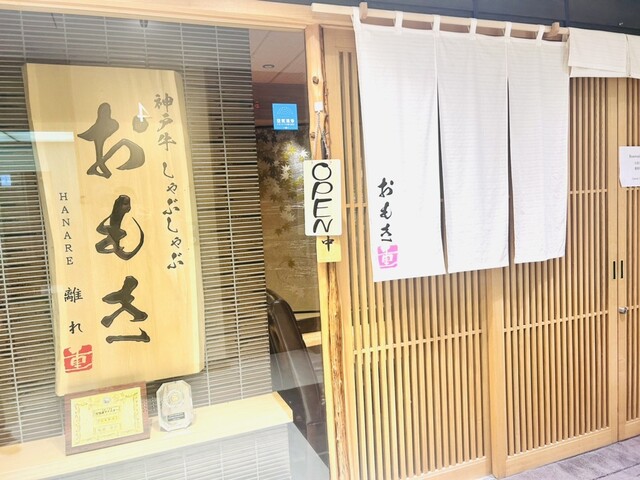 神戸牛 しゃぶしゃぶ
おもき
HANARE 離れ
OPEN
中
おもき